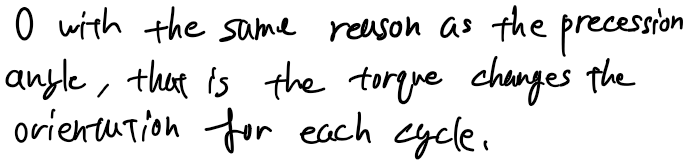 0 with the same reason as the precession
angle, that is the torque changes the
orientation for each cycle.